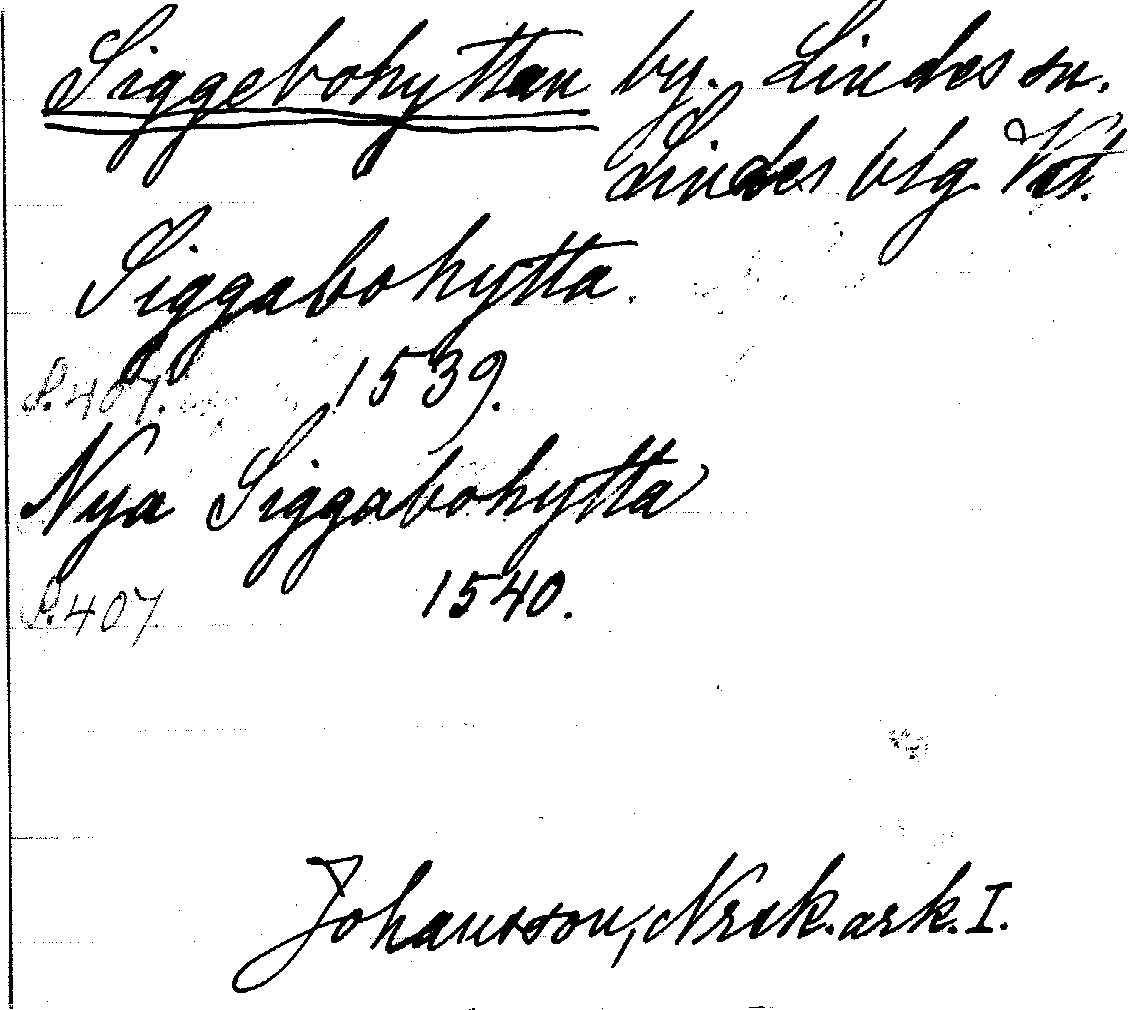 Siggebohyttan by. Lindes sn.
Lindes blg Vst.
Siggabohytta.
S. 407. 1539.
Nya Siggabohytta
S. 407. 1540.
Johansson, Nrik. ark. I.